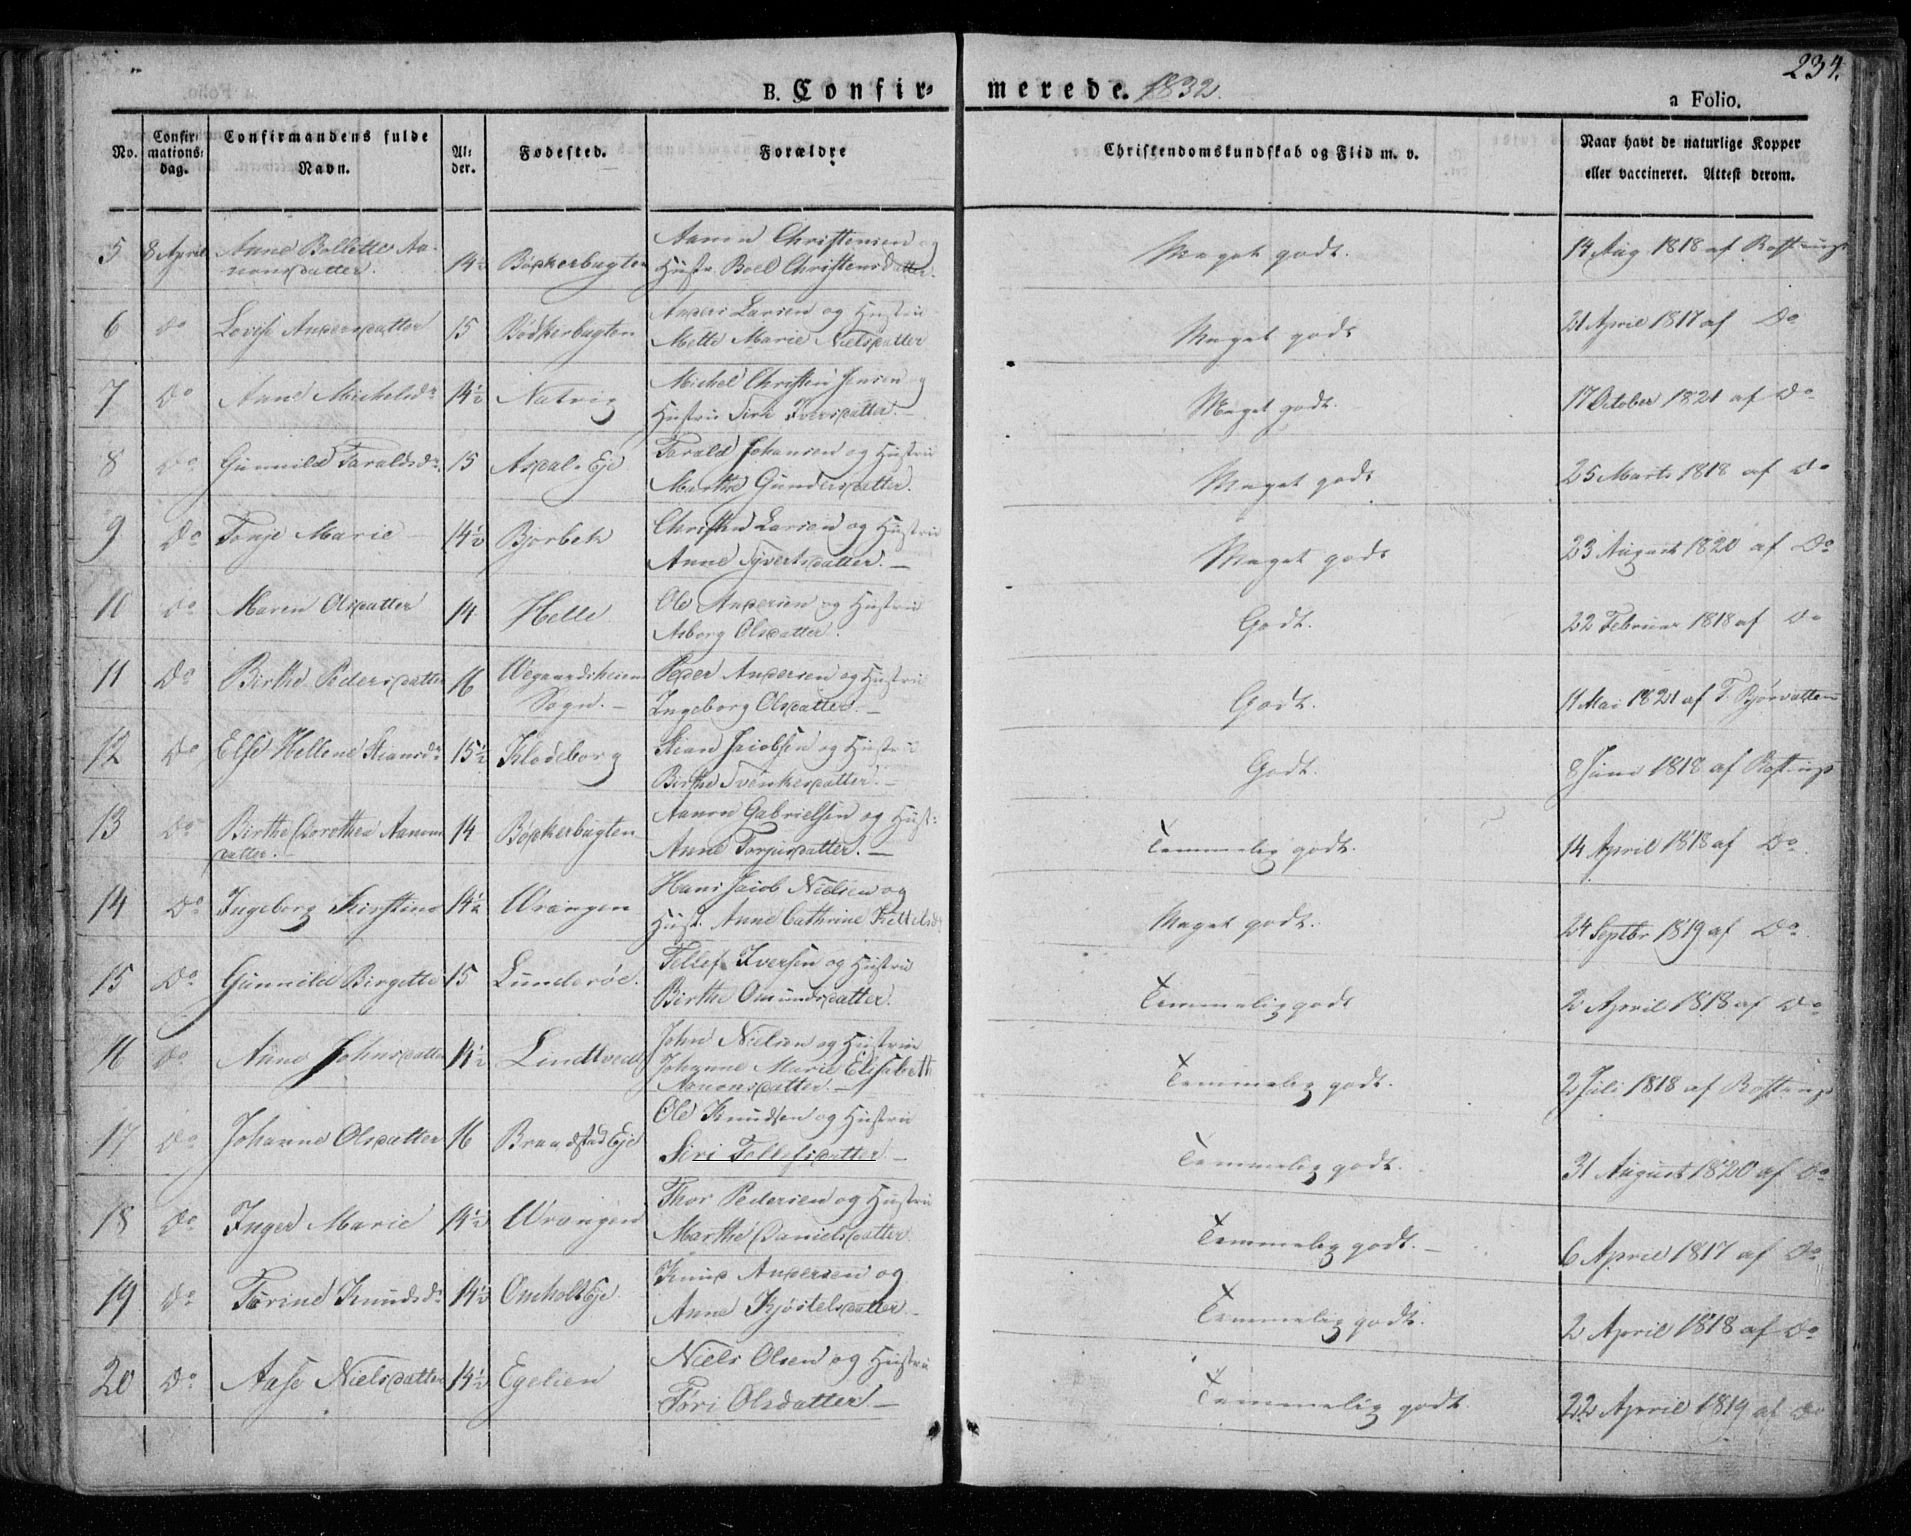 234.
B. Confir- merede. 1832.
a Folio.
No. Confirmations-dag. Confirmandens fulde Navn. Alder. Fødested. Forældre Christendomskundskab og Flid m. v. Naar havt de naturlige Kopper eller vaccineret. Attest derom.
5 8 April Anne Bollette Aa- 14½ Bødkerbugten Aanon Christensen og Meget godt. 14 Aug 1818 af
nonsdatter. Hustr. Boel Christensdatter.
6 Do Lovise Andersdatter 15 Bødkerbugten Anders Larsen og Hustru Meget godt 21 April 1817 af Do
Mette Marie Nielsdatter
7 Do Anne Michelsdr 14½ Natvig Michel Christen Jensen og Meget godt. 17 October 1821 af Do
Hustru Siri Iversdatter. —
8 Do Gunnild Taraldsdr. 15 Asdal. Eje Tarald Johansen og Hustru Meget godt 25 Marts 1818 af Do
Marthe Gundersdatter.
9 Do Tonje Marie 14½ Bjorbek Christen Larsen og Hustru Meget godt 23 August 1820 af Do
Anne Syvertsdatter. —
10 Do Maren Olsdatter 14 Helle Ole Andersen og Hustru Godt. 22 Februar 1818 af Do
Asborg Olsdatter.
11 Do Birthe Pedersdatter 16 Wegaardsheiens Peder Andersen og Hustru Godt. 11 Mai 1821 af T. Bjørvatten
Sogn. — Ingeborg Olsdatter. —
12 Do Else Hellene Steansdr 15½ Klodeborg Stean Jacobsen og Hustru Godt. 8 Juni 1818 af
Birthe Svenkesdatter. —
13 Do Birthe Dorothea Aanons 14 Bødkerbugten Aanon Gabrielsen og Hust: Temmelig godt. 14 April 1818 af Do
datter. — Anne Torjusdatter. —
14 Do Ingeborg Kirstine 14½ Wrangen Hans Jacob Nielsen og Meget godt. 24 Septbr 1819 af Do.
Hust. Anne Cathrine Kittelsdr
15 Do Gunnild Birgette 15 Lunderöe. Tellef Iversen og Hustru Temmelig godt 2 April 1818 af Do
Birthe Omundsdatter.
16 Do Anne Johnsdatter 14½ Lindtveed John Nielsen og Hustrue Temmelig godt. 2 Juli 1818 af
Johanne Marie Elisabeth
Aanonsdatter. —
17 Do Johanne Olsdatter 16 Braadstad Eje Ole Knudsen og Hustru Temmelig godt. 31 August 1820 af Do
Siri Tellefsdatter. —
18 Do Inger Marie 14½ Wrangen Thor Pedersen og Hustru Temmelig godt. — 6 April 1817 af Do
Marthe Danielsdatter
19 Do Torine Knudsdr 14½ Omholt Eje Knud Andersen og Temmelig godt. 2 April 1818 af Do
Anne Kjöstelsdatter —
20 Do Aase Nielsdatter 14½ Egelien Niels Olsen og Hustru Temmelig godt. 22 April 1819 af Do
Töri Olsdatter —